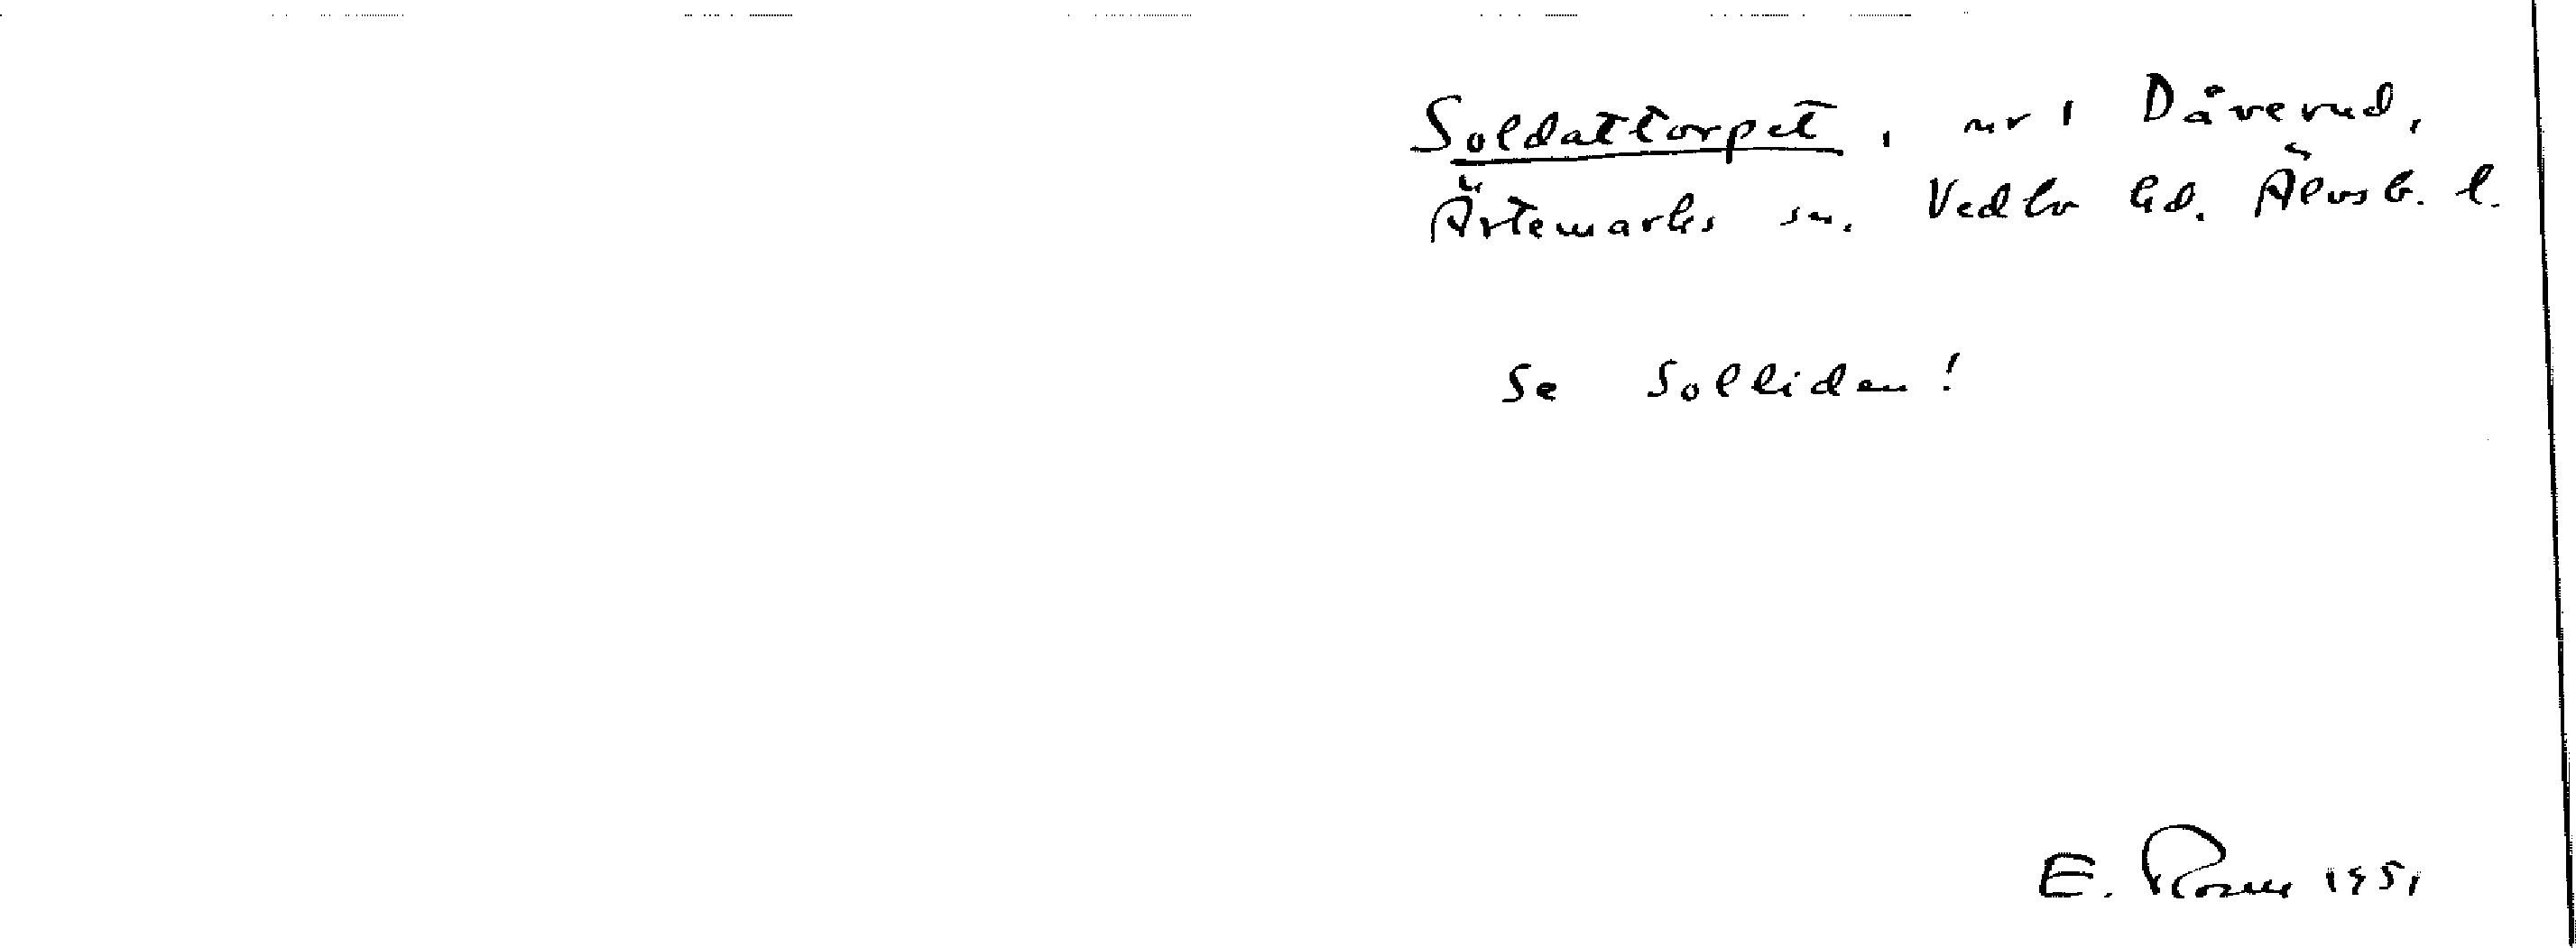 Soldattorpet, nr 1 Dåverud,
Ärtemarks sn. Vedbo hd. Älvsb. l.
Se Solliden!
E. 1951